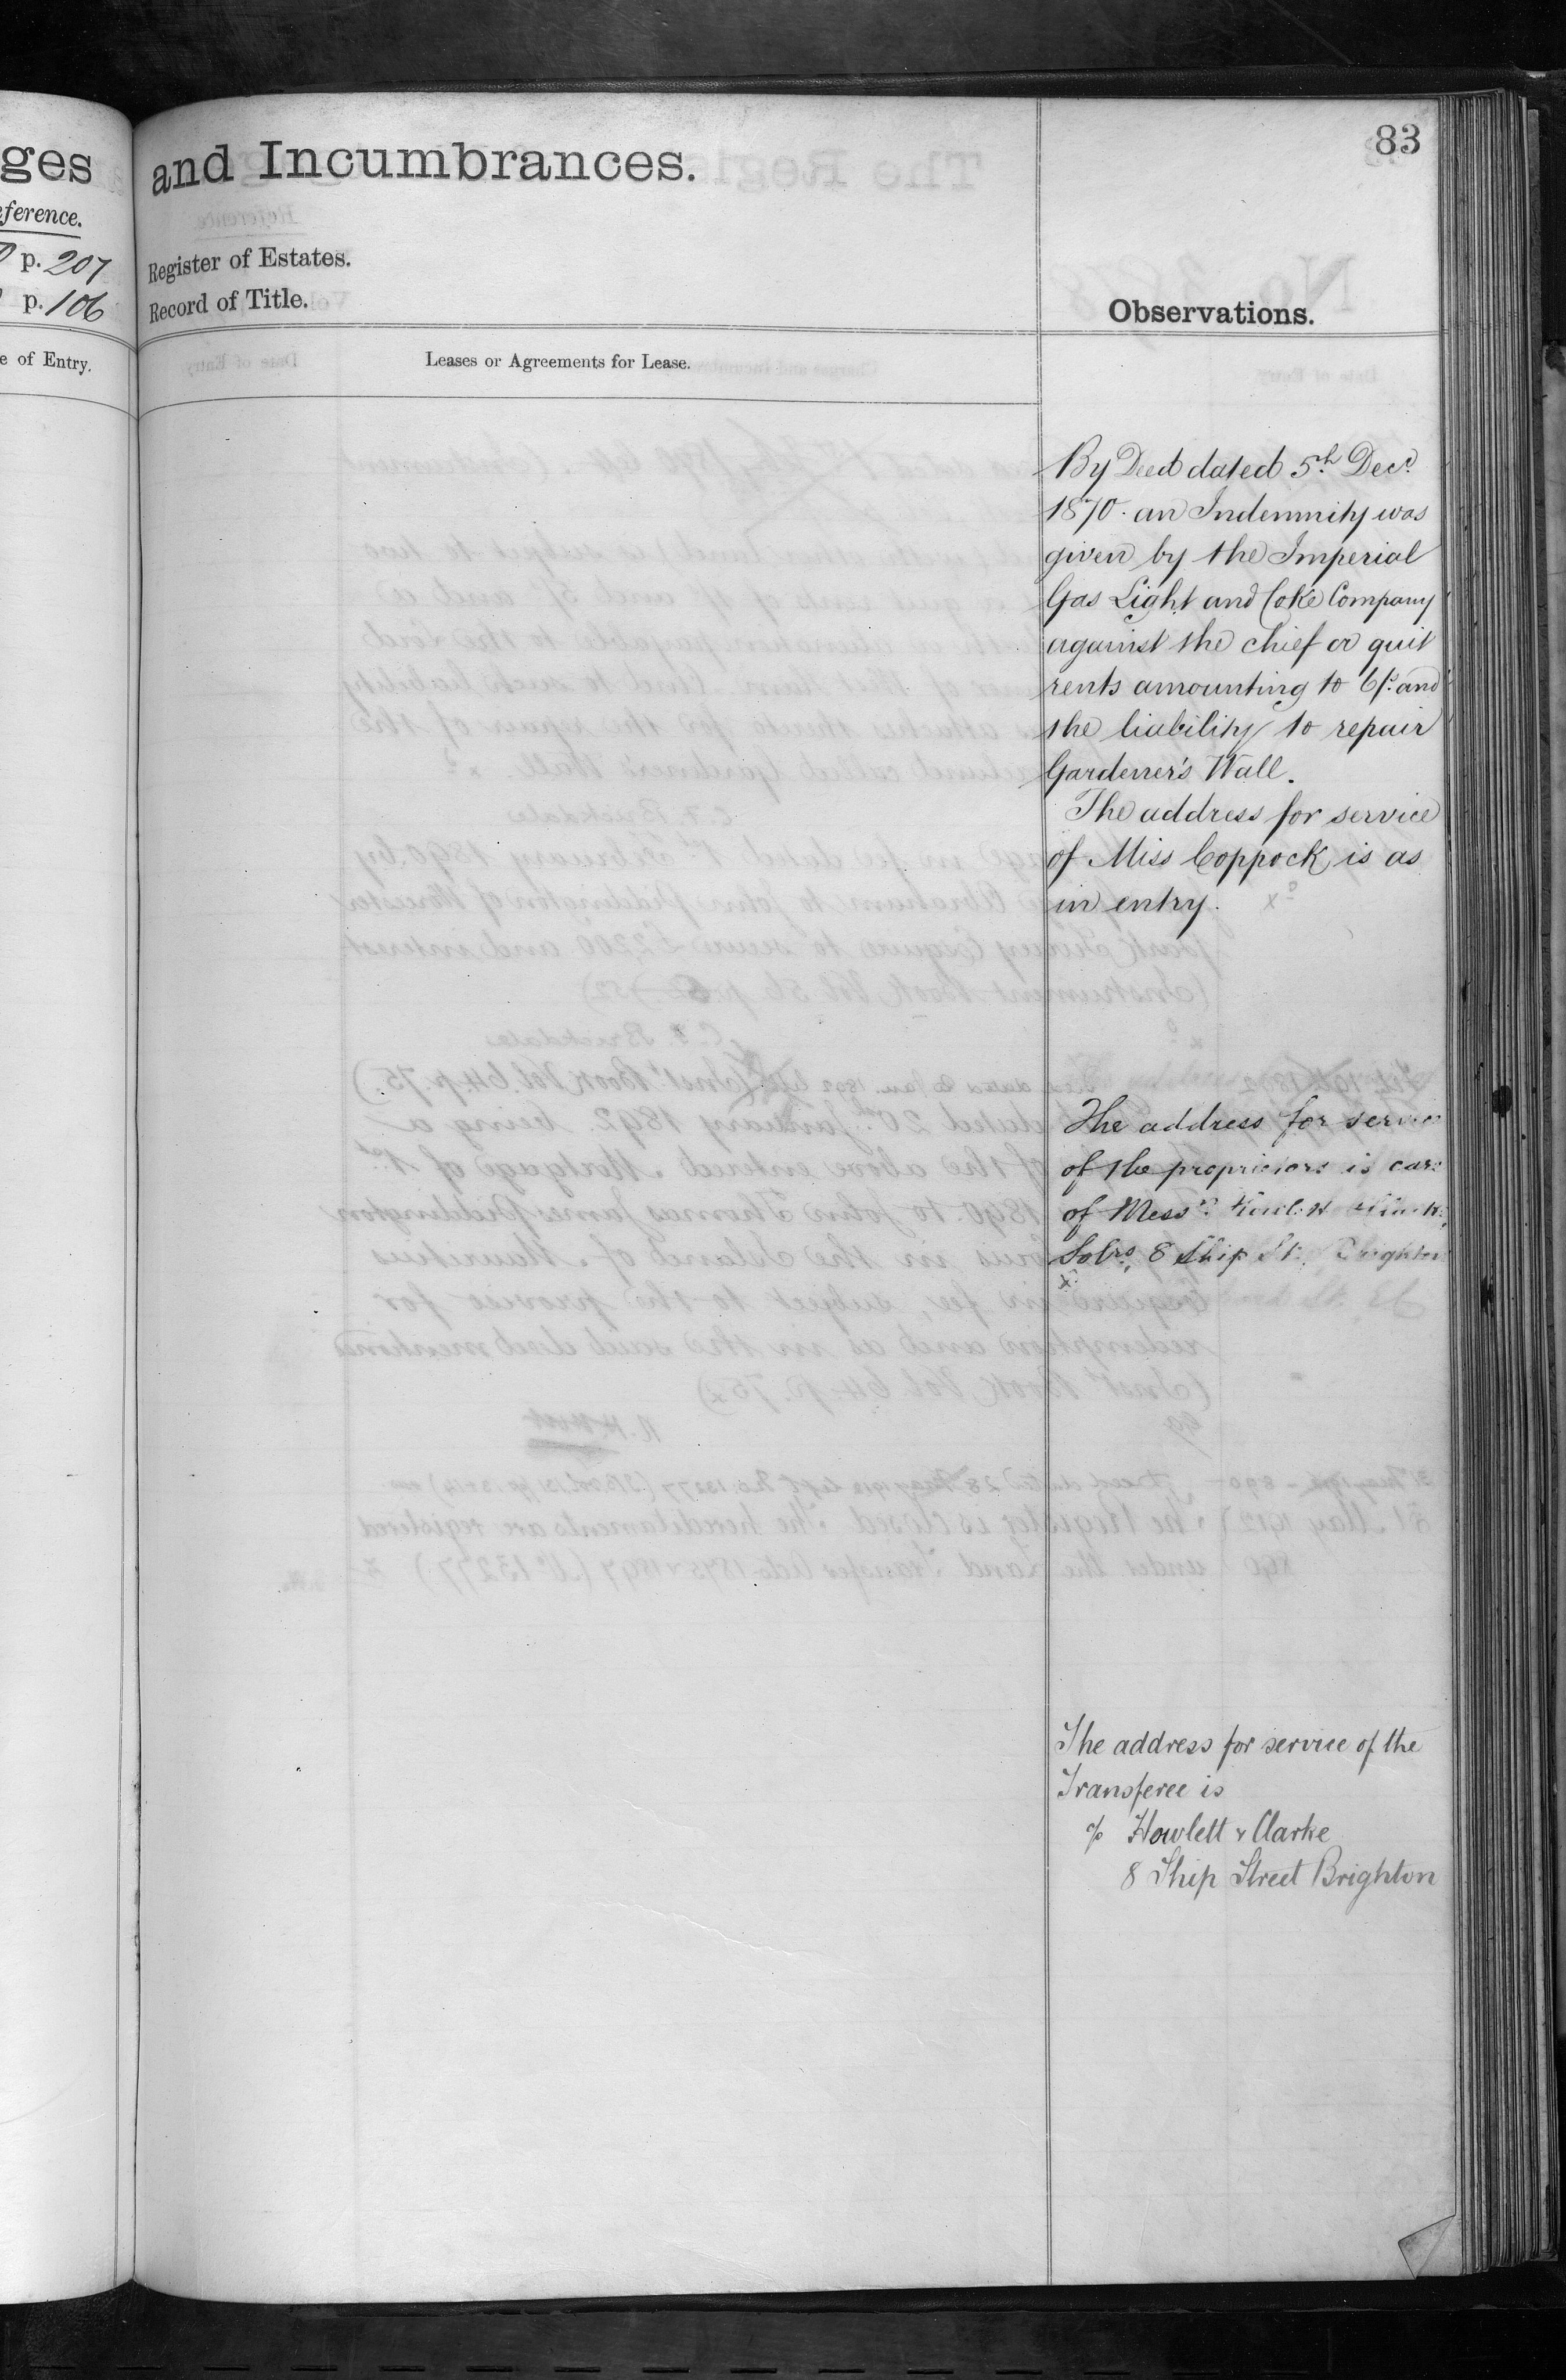 ges
and Incumbrances.
83
eference.
p. 207
Register of Estates.
p. 106
Record of Title.
Observations.
e of Entry.
Leases or Agreements for Lease.
By Deed dated 5th Decr
1870. an Indemnity was
given by the Imperial
Gas Light and Coke Company
against the chief or quit
rents amounting to 6/s. and
the liability to repair
Gardener's Wall.
The address for service
of Miss Coppock is as
in entry.
The address for service
of the proprietors is care
of Messrs. Howlett Clarke,
Solrs, 8 Ship St. Brighton
The address for service of the
Transferee is
c/o Howlett & Clarke
8 Ship Street Brighton